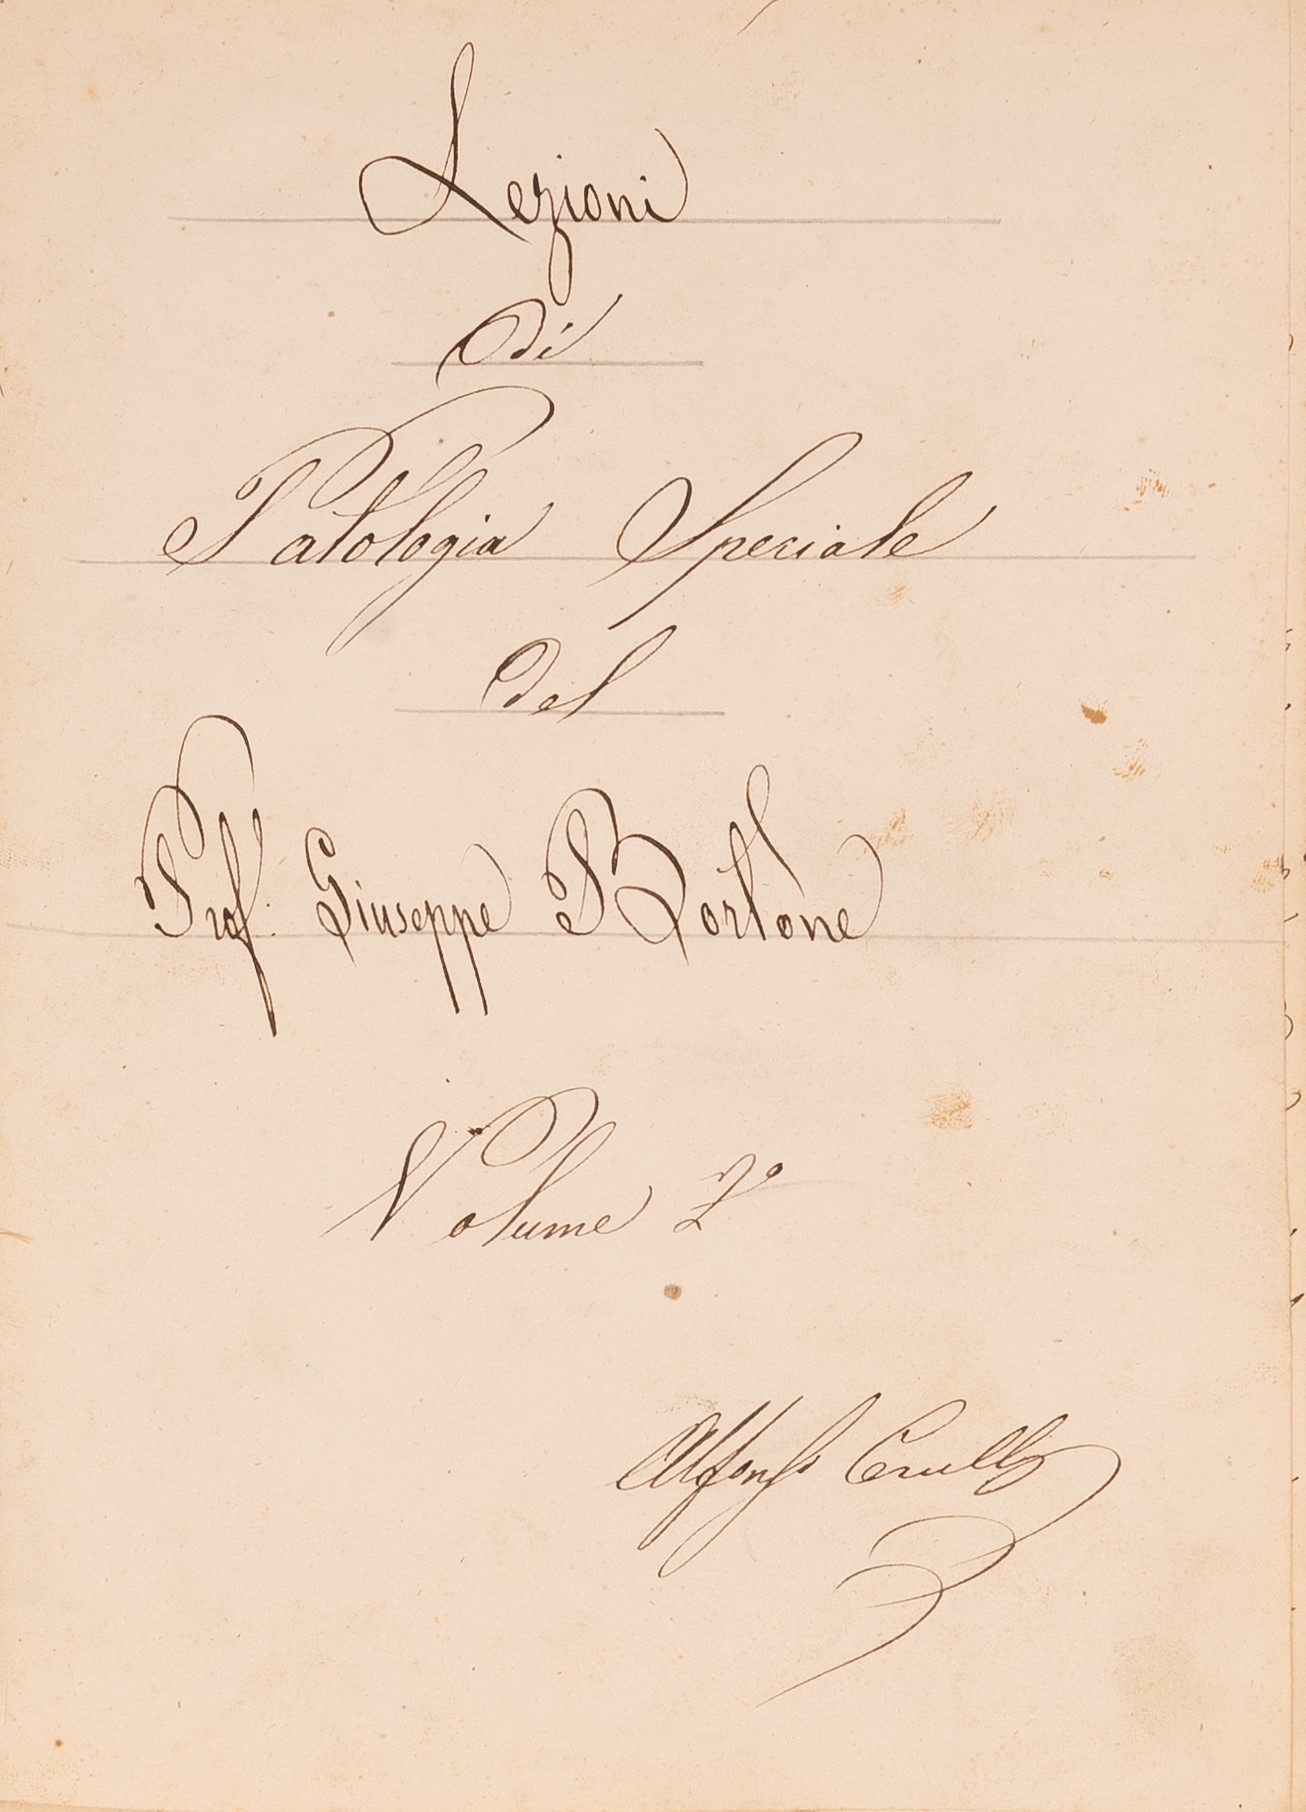 Lezioni
di
Patologia Speciale
del
Prof. Giuseppe Bortone
Volume 2º
Alfonso